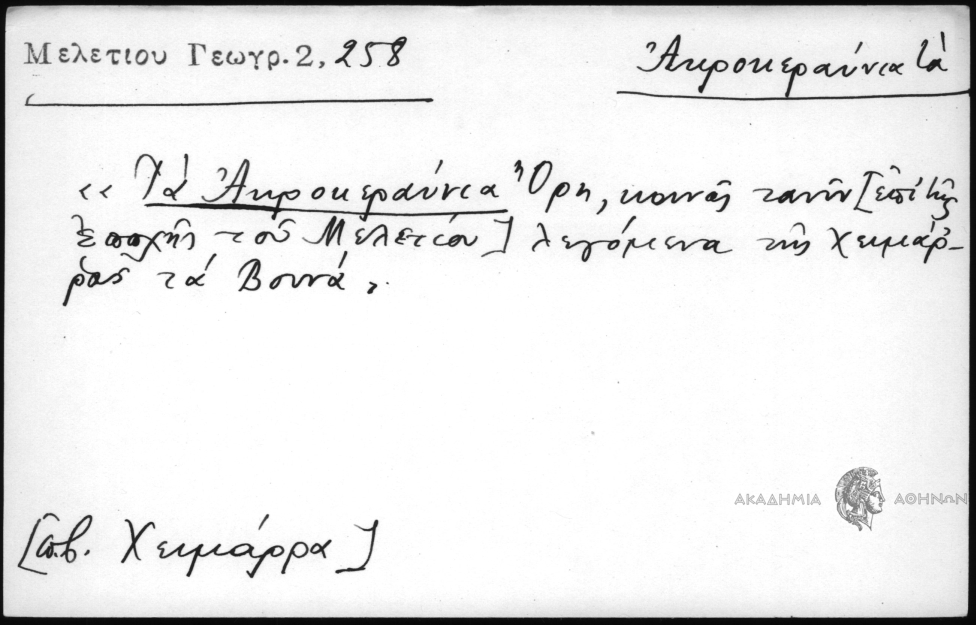 Μελετιου Γεωγρ. 2, 258
Ἀκροκεραύνια τά
«Τά Ἀκροκεραύνια Ὄρη, κοινῶς τανῦν [ἐπί τῆς
ἐποχῆς τοῦ Μελετίου] λεγόμενα τῆς Χειμάρ-
ρας τά Βουνά,
ΑΚΑΔΗΜΙΑ ΑΘΗΝΩΝ
Χειμάρρα]